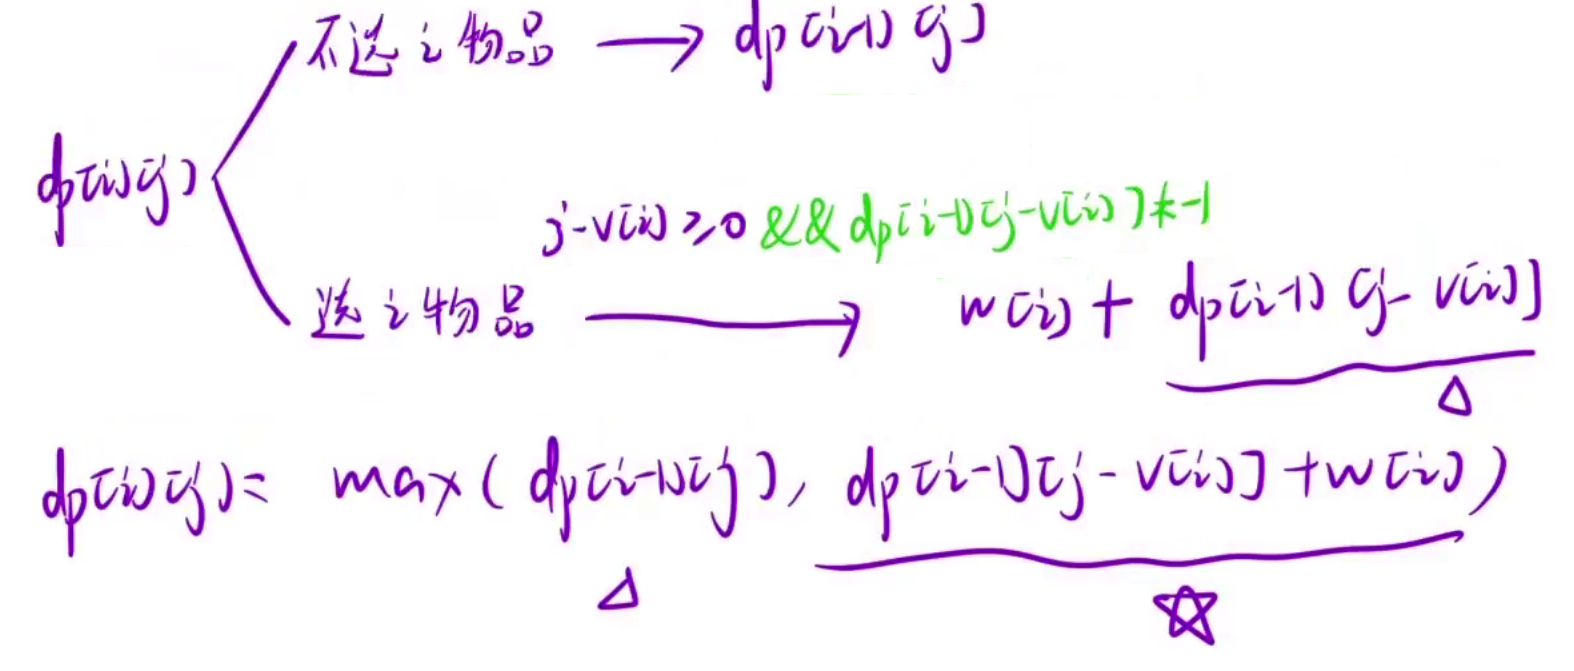 不选 i 物品 → dp[i-1][j]
dp[i][j]
j-v[i] ≥ 0 && dp[i-1][j-v[i]] ≠ -1
选 i 物品 → w[i] + dp[i-1][j-v[i]]
dp[i][j] = max(dp[i-1][j], dp[i-1][j-v[i]]+w[i])